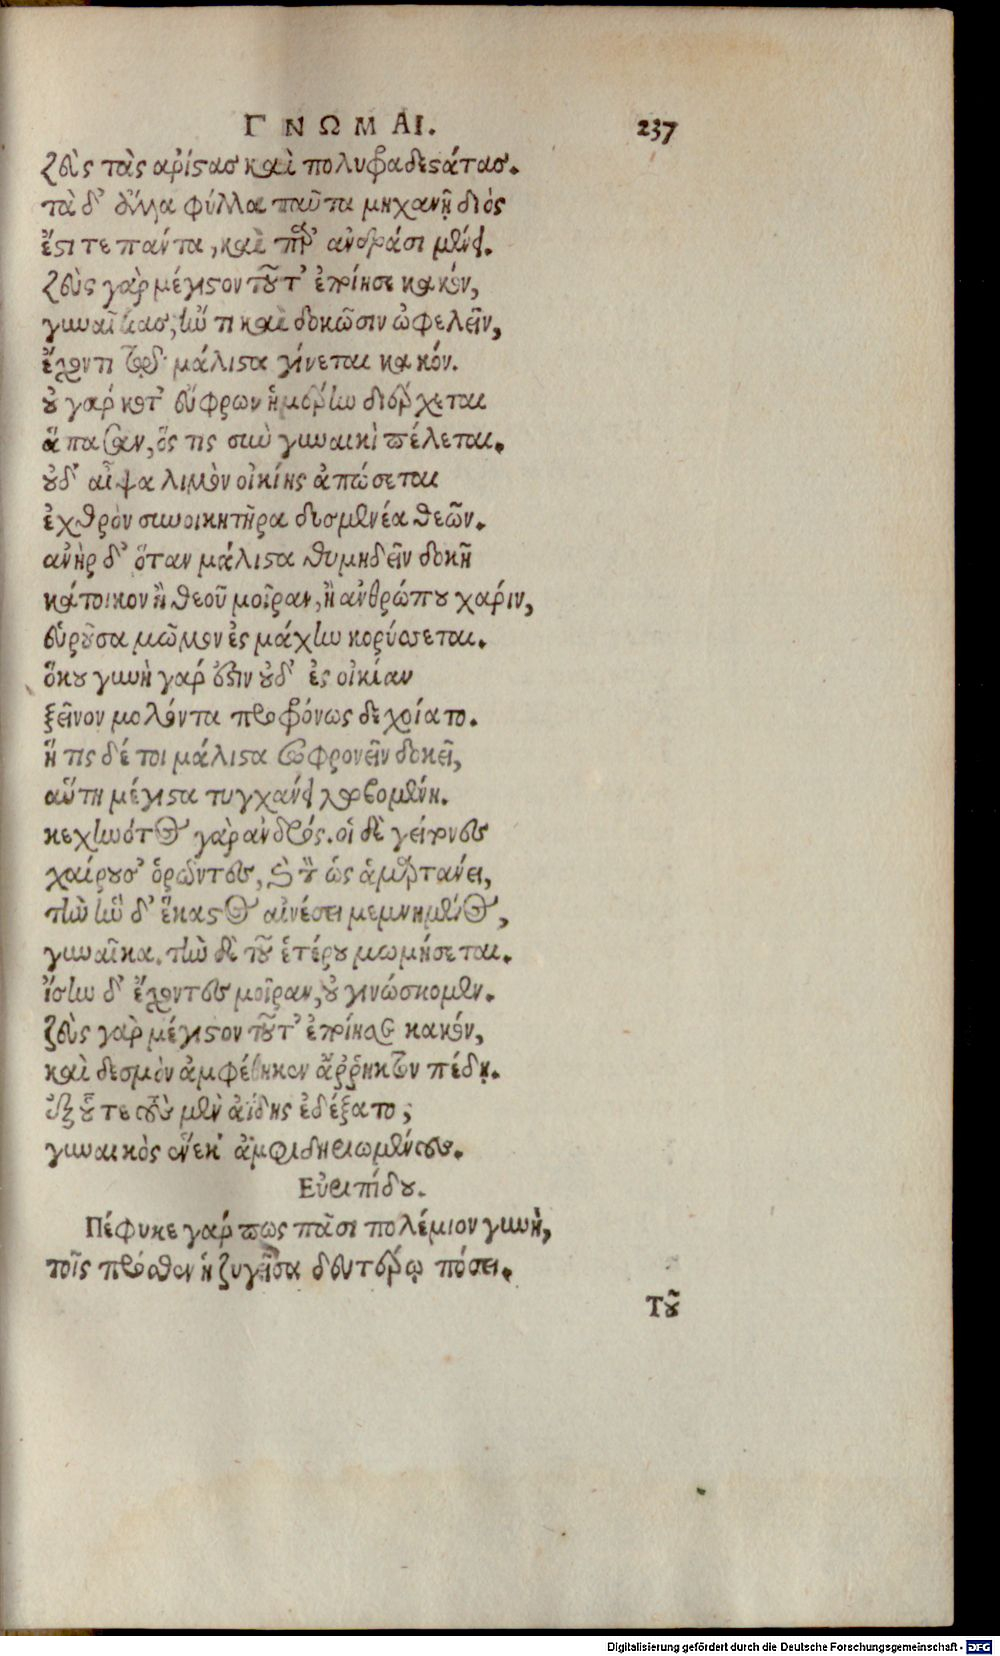 ΓΝΩΜΑΙ. 237
Ζεὺς τὰς ἀρίστας καὶ πολυφραδεστάτας.
τὰ δ' ἄλλα φύλλα ταῦτα μηχανῇ διὸς
ἔστι τε πάντα, καὶ παρ' ἀνδράσι μένει.
Ζεὺς γὰρ μέγιστον τοῦτ' ἐποίησε κακόν,
γυναῖκας, ἤν τι καὶ δοκῶσιν ὠφελεῖν,
ἔχοντι τῳδὶ μάλιστα γίνεται κακόν.
οὐ γάρ κοτ' εὔφρων ἡμέρην διέρχεται
ἅπασαν, ὅς τις σὺν γυναικὶ πέλεται.
οὐδ' αἶψα λιμὸν οἰκίης ἀπώσεται
ἐχθρὸν συνοικητῆρα δυσμενέα θεῶν.
ἀνὴρ δ' ὅταν μάλιστα θυμηδεῖν δοκῇ
κάτοικον ἢ θεοῦ μοῖραν, ἢ ἀνθρώπου χάριν,
εὑροῦσα μῶμον ἐς μάχην κορύσσεται.
ὅκου γυνὴ γάρ ἐστιν οὐδ' ἐς οἰκίαν
ξεῖνον μολόντα προφρόνως δεχοίατο.
ἥ τις δέ τοι μάλιστα σωφρονεῖν δοκεῖ,
αὕτη μέγιστα τυγχάνει λωβομένη.
κεχηνότος γὰρ ἀνδρός. οἱ δὲ γείτονες
χαίρουσ' ὁρῶντες, καὶ τὸν ὡς ἁμαρτάνει,
τὴν ἣν δ' ἕκαστος αἰνέσει μεμνημένος,
γυναῖκα. τὴν δὲ τοῦ ἑτέρου μωμήσεται.
ἴσην δ' ἔχοντες μοῖραν, οὐ γινώσκομεν.
Ζεὺς γὰρ μέγιστον τοῦτ' ἐποίησε κακόν,
καὶ δεσμὸν ἀμφέθηκεν ἄῤῥηκτον πέδῃ.
ἐξ οὗ τε τοὺς μὲν ἀΐδης ἐδέξατο,
γυναικὸς οὕνεκ' ἀμφιδηριωμένους.
Εὐριπίδου.
Πέφυκε γάρ πως πᾶσι πολέμιον γυνή,
τοῖς πρόσθεν ἡ ζυγεῖσα δευτέρῳ πόσει.
Τοῦ
Digitalisierung gefördert durch die Deutsche Forschungsgemeinschaft - DFG